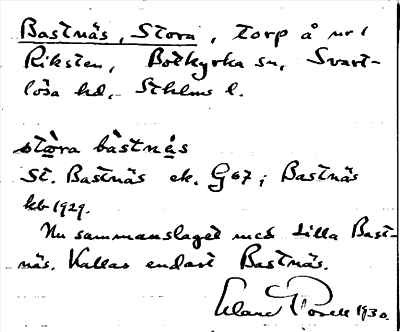 Bastnäs, Stora, torp å nr 1
Riksten, Botkyrka sn, Svart-
lösa hd, Sthlms l.
stòra bàstnä́s
St. Bastnäs ek. G 67; Bastnäs
kb 1929.
Nu sammanslaget med Lilla Bast-
näs. Kallas endast Bastnäs.
1930.